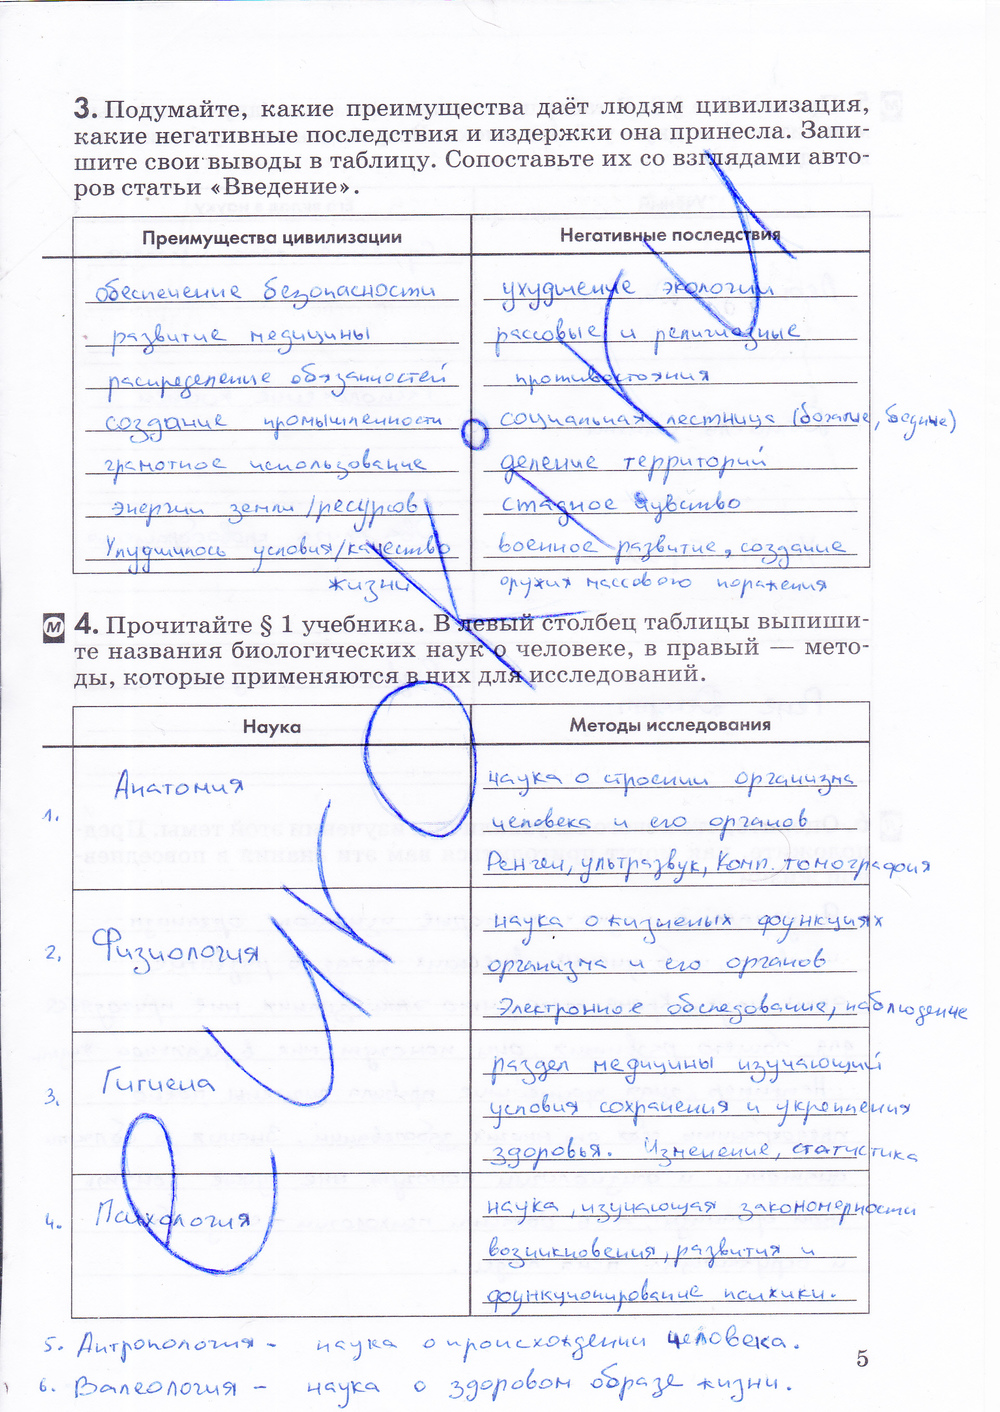 3. Подумайте, какие преимущества даёт людям цивилизация,
какие негативные последствия и издержки она принесла. Запи-
шите свои выводы в таблицу. Сопоставьте их со взглядами авто-
ров статьи «Введение».
Преимущества цивилизации
обеспечение безопасности
развитие медицины
распределение обязанностей
создание промышленности
грамотное использование
энергии земли/ресурсов
Улудшилось условия/качество
жизни
Негативные последствия
ухудшение экологии
рассовые и религиозные
противостояния
социальная лестница (богатые, бедные)
деление территорий
стадное чувство
военное развитие, создание
оружия массового поражения
м 4. Прочитайте § 1 учебника. В левый столбец таблицы выпиши-
те названия биологических наук о человеке, в правый — мето-
ды, которые применяются в них для исследований.
Наука Методы исследования
1. Анатомия
наука о строении организма
человека и его органов
Ренген, ультразвук, Комп. томография
2. Физиология
наука о жизненых функциях
организма и его органов
Электронное обследование, наблюдение
3. Гигиена
раздел медицины изучающий
условия сохранения и укрепления
здоровья. Изменение, статистика
4. Психология
наука, изучающая закономерности
возникновения, развития и
функционирование психики.
5. Антропология - наука о происхождении человека.
6. Валеология - наука о здоровом образе жизни.
5